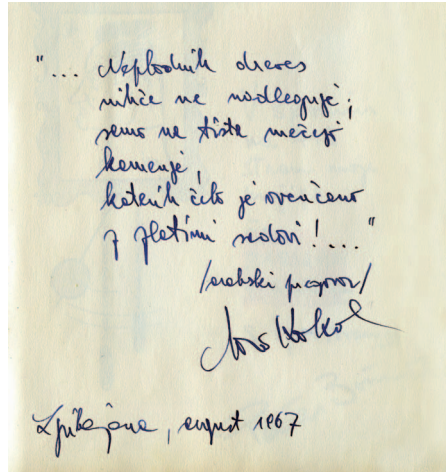 "... Neplodnih dreves
nihče ne nadleguje;
samo na tista mečejo
kamenje,
katerih čelo je ovenčano
z zlatimi sadovi!..."
/arabski pregovor/
Ljubljana, avgust 1967